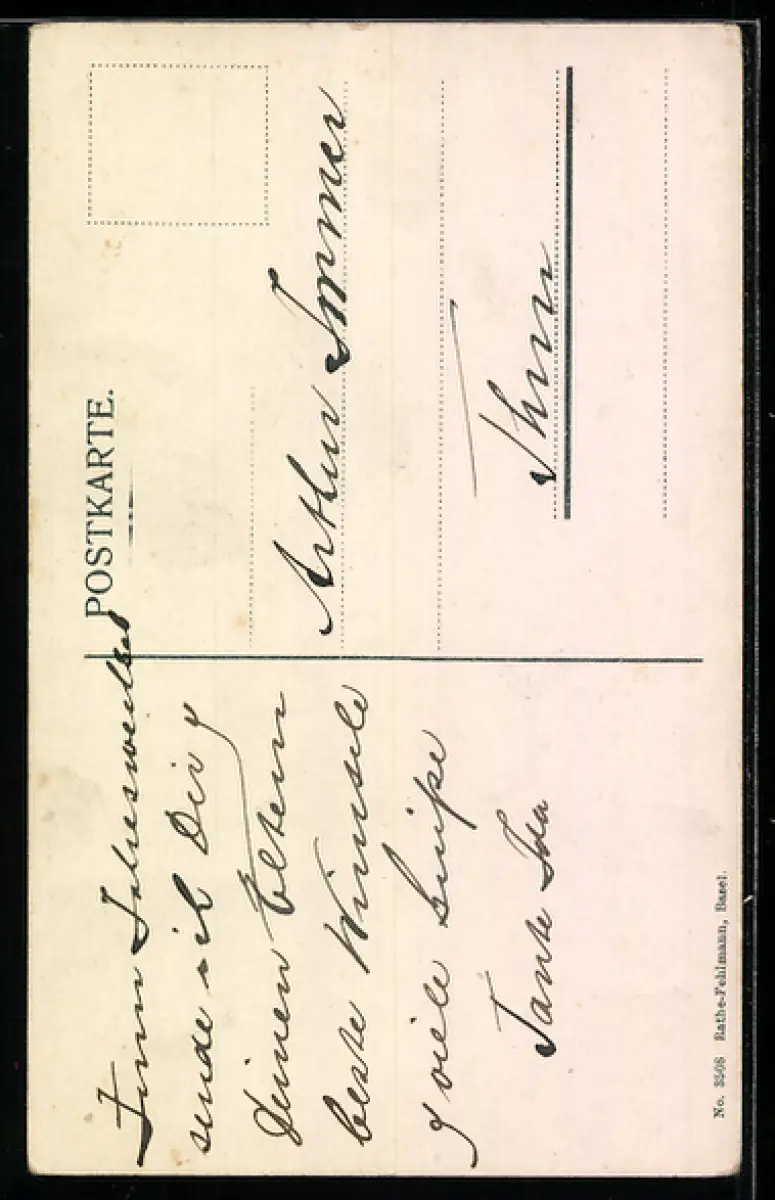 POSTKARTE.
Zum Jahreswechsel
sende ich Dir &
Deinen Eltern
beste Wünsche
& viele Grüsse
Tante Ida
Arthur Immer
Thun
No. 3508 Rathe-Fehlmann, Basel.